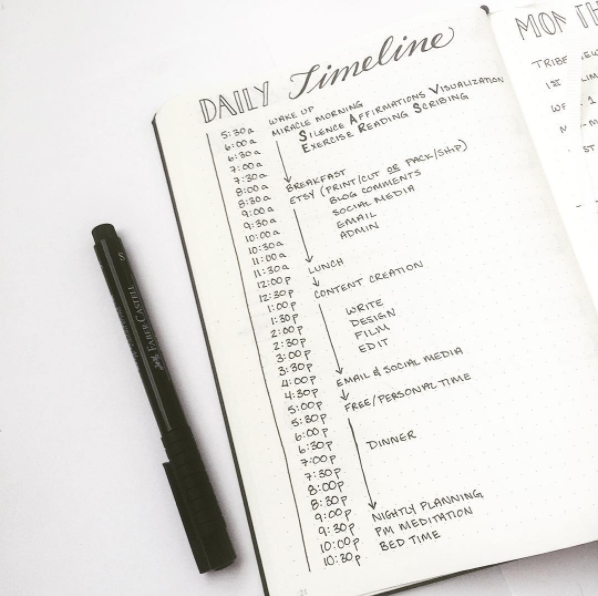 DAILY Timeline
5:30a
6:00a
6:30a
7:00a
7:30a
8:00a
8:30a
9:00a
9:30a
10:00a
10:30a
11:00a
11:30a
12:00p
12:30p
1:00p
1:30p
2:00p
2:30p
3:00p
3:30p
4:00p
4:30p
5:00p
5:30p
6:00p
6:30p
7:00p
7:30p
8:00p
8:30p
9:00p
9:30p
10:00p
10:30p
WAKE UP
MIRACLE MORNING
SILENCE AFFIRMATIONS VISUALIZATION
EXERCISE READING SCRIBING
BREAKFAST
ETSY (PRINT/CUT OR PACK/SHIP)
BLOG COMMENTS
SOCIAL MEDIA
EMAIL
ADMIN
LUNCH
CONTENT CREATION
WRITE
DESIGN
FILM
EDIT
EMAIL & SOCIAL MEDIA
FREE/PERSONAL TIME
DINNER
NIGHTLY PLANNING
PM MEDITATION
BED TIME
21
TRIBE
1st
FABER-CASTELL
S